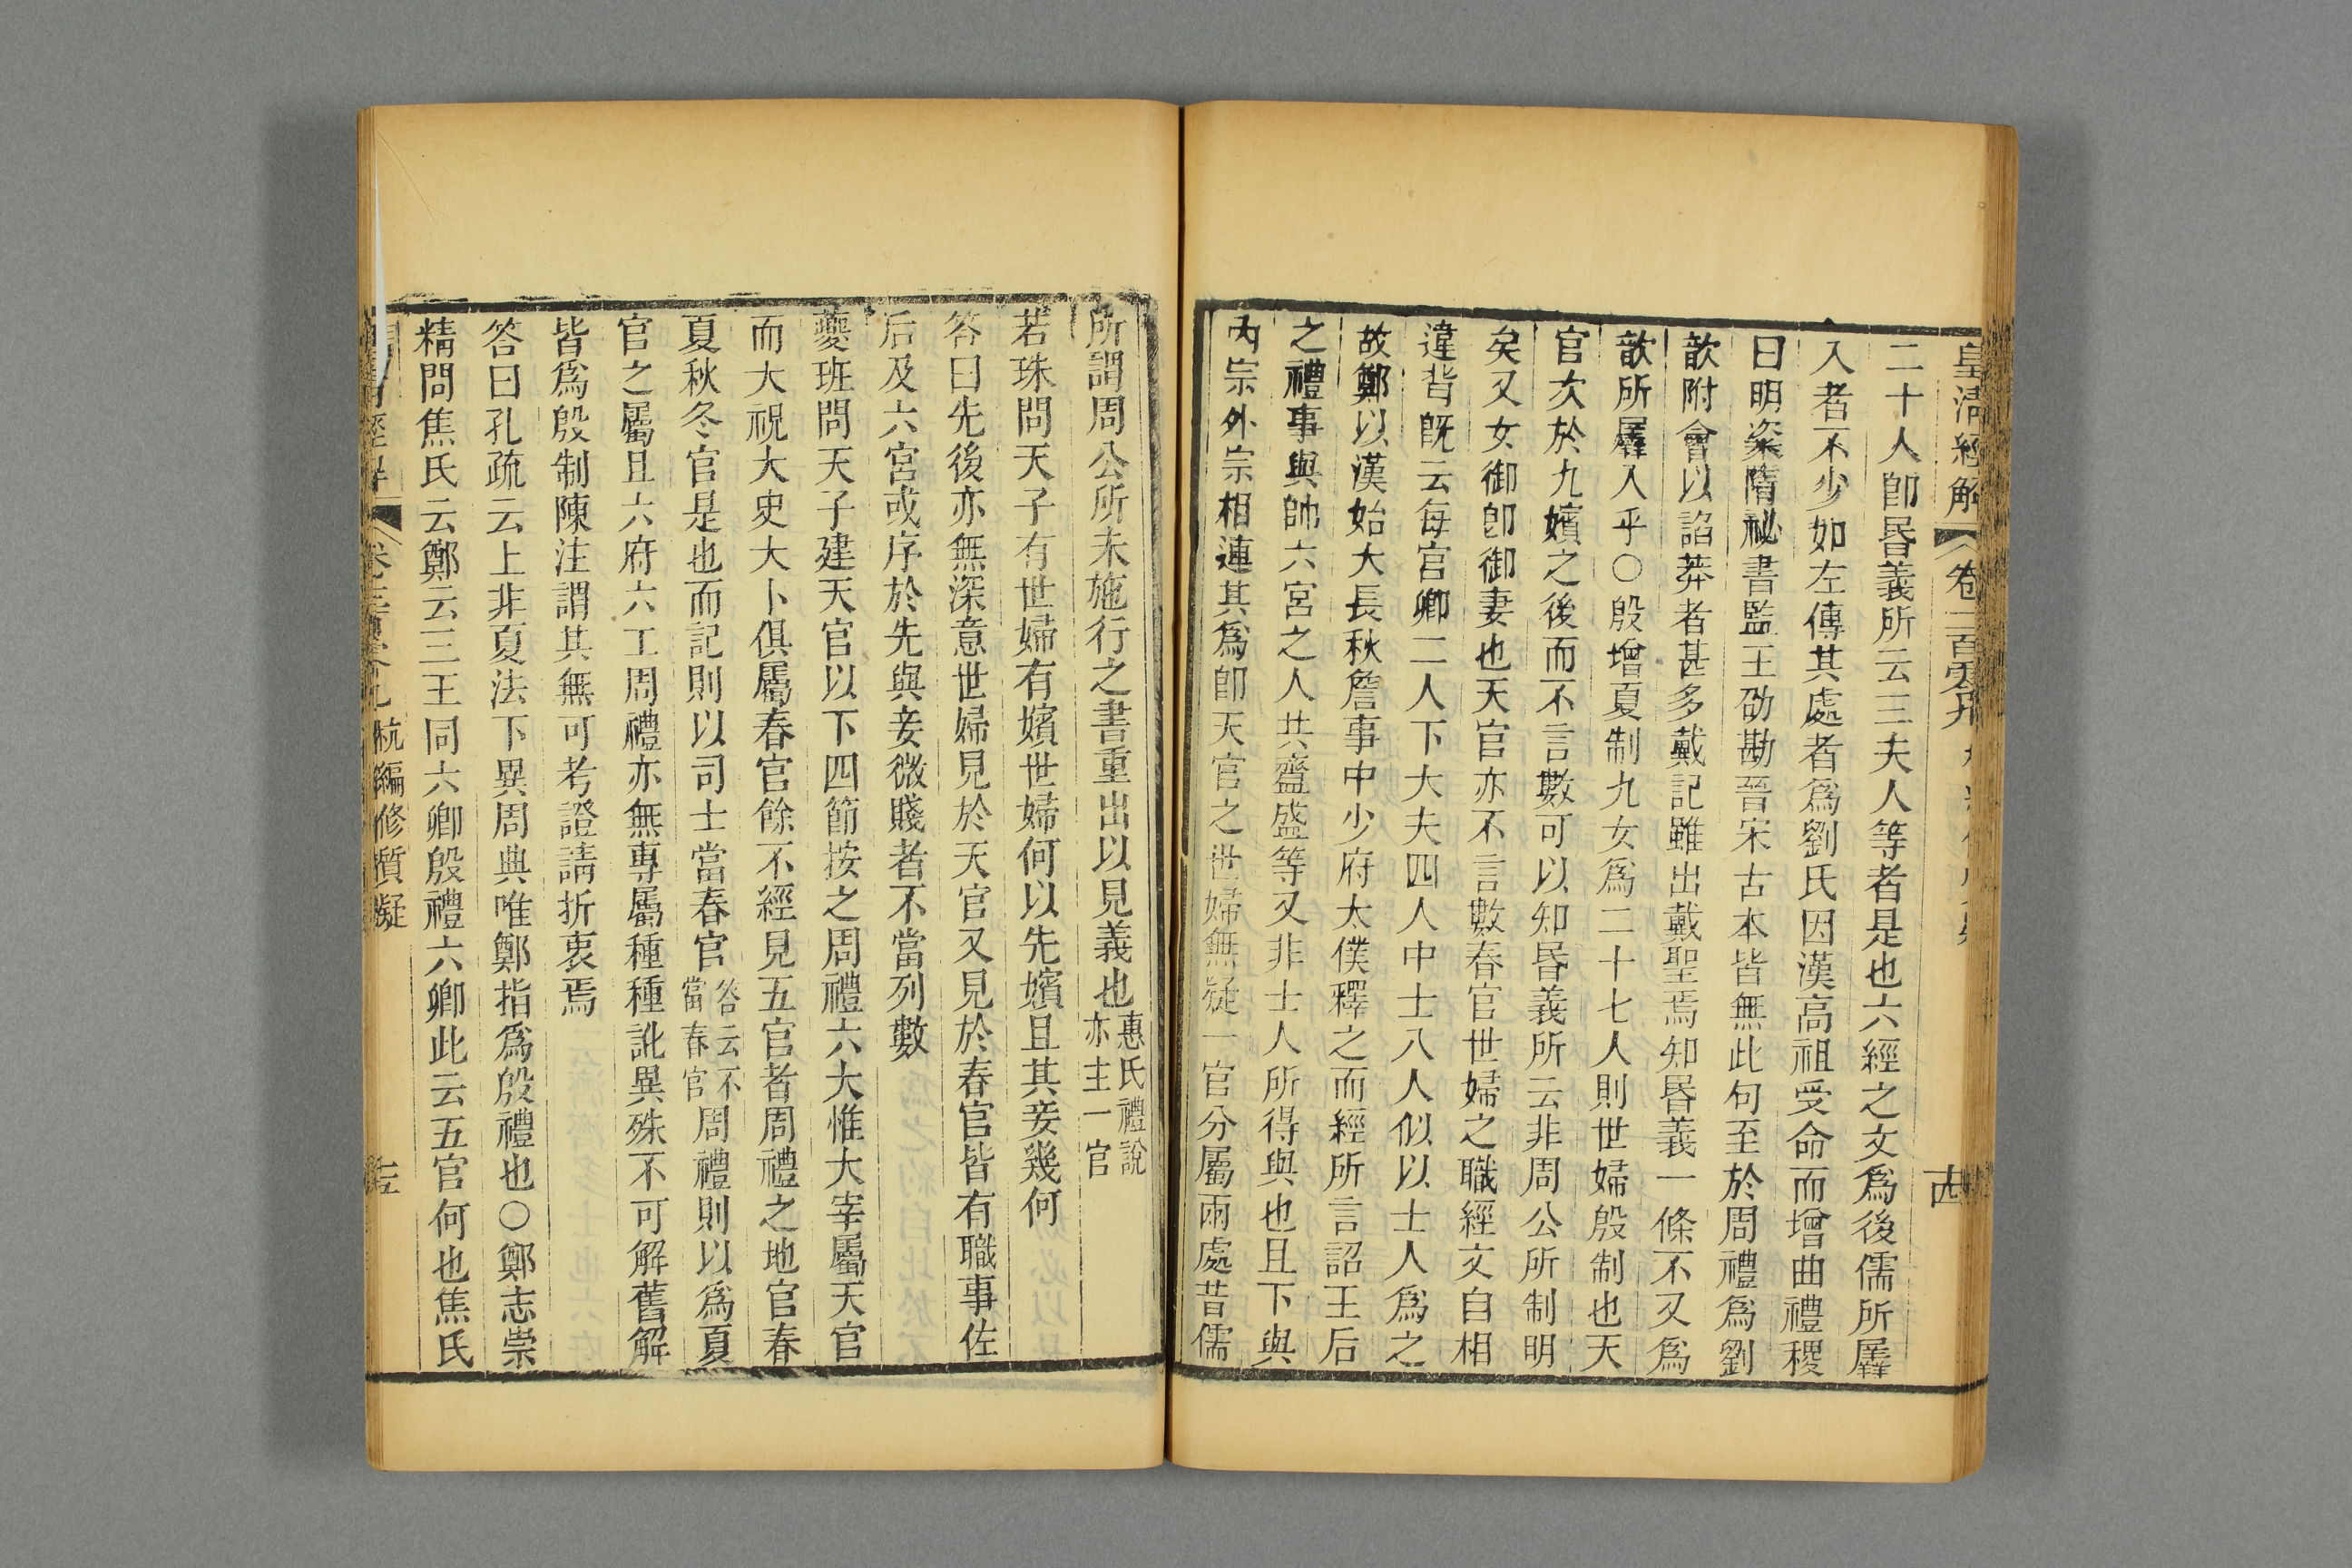 皇清經解 卷二百零九
十四
二十人卽昏義所云三夫人等者是也六經之文爲後儒所羼
入者不少如左傳其處者爲劉氏因漢高祖受命而增曲禮稷
曰明粢隋祕書監王劭勘晉宋古本皆無此句至於周禮爲劉
歆附會以諂莽者甚多戴記雖出戴聖焉知昏義一條不又爲
歆所羼入乎〇殷增夏制九女爲二十七人則世婦殷制也天
官次於九嬪之後而不言數可以知昏義所云非周公所制明
矣又女御卽御妻也天官亦不言數春官世婦之職經文自相
違背旣云每官卿二人下大夫四人中士八人似以士人爲之
故鄭以漢始大長秋詹事中少府太僕釋之而經所言詔王后
之禮事與帥六宮之人共齍盛等又非士人所得與也且下與
內宗外宗相連其爲卽天官之世婦無疑一官分屬兩處昔儒
所謂周公所未施行之書重出以見義也惠氏禮說亦主一官
若珠問天子有世婦有嬪世婦何以先嬪且其妾幾何
答曰先後亦無深意世婦見於天官又見於春官皆有職事佐
后及六宮或序於先與妾微賤者不當列數
夔班問天子建天官以下四節按之周禮六大惟大宰屬天官
而大祝大史大卜俱屬春官餘不經見五官者周禮之地官春
夏秋冬官是也而記則以司士當春官答云不當春官周禮則以爲夏
官之屬且六府六工周禮亦無專屬種種訛異殊不可解舊解
皆爲殷制陳注謂其無可考證請折衷焉
答曰孔疏云上非夏法下異周典唯鄭指爲殷禮也〇鄭志崇
精問焦氏云鄭云三王同六卿殷禮六卿此云五官何也焦氏
杭編修質疑